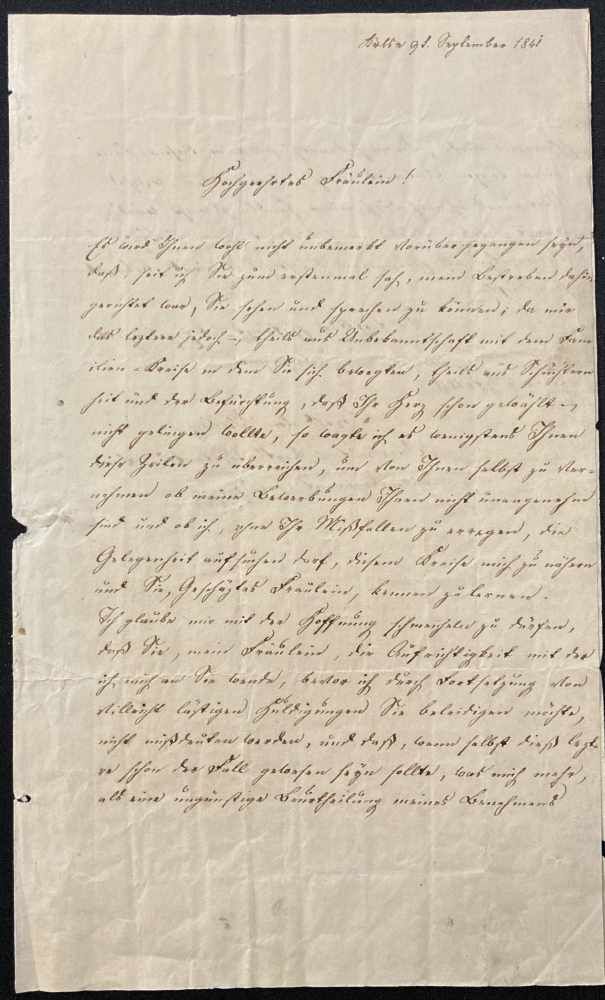 9t. September 1841
Hochgeehrtes Fräulein!
Es wird Ihnen wohl nicht unbemerkt vorübergegangen seyn,
daß, seit ich Sie zum erstenmal sah, mein Bestreben dahin
gerichtet war, Sie sehen und sprechen zu können; da mir
das leztere jedoch –, theils aus Unbekanntschaft mit dem Fam
ilien-Kreise in dem Sie sich bewegten, theils aus Schüchtern
heit und der Befürchtung, daß Ihr Herz schon gewählt –,
nicht gelingen wollte, so wagte ich es wenigstens Ihnen
diese Zeilen zu überreichen, um von Ihnen selbst zu ver-
nehmen ob meine Bewerbungen Ihnen nicht unangenehm
sind und ob ich, ohne Ihr Mißfallen zu erregen, die
Gelegenheit aufsuchen darf, diesem Kreise mich zu nähern
und Sie, Geschäztes Fräulein, kennen zu lernen.
Ich glaube mir mit der Hoffnung schmeicheln zu dürfen,
daß Sie, mein Fräulein, die Aufrichtigkeit mit der
ich mich an Sie wende, bevor ich durch Fortsetzung von
villeicht lästigen Huldigungen Sie beleidigen möchte,
nicht mißdeuten werden, und daß, wenn selbst dieß lezte
re schon der Fall gewesen seyn sollte, was mich mehr,
als eine ungünstige Beurtheilung meines Benehmens